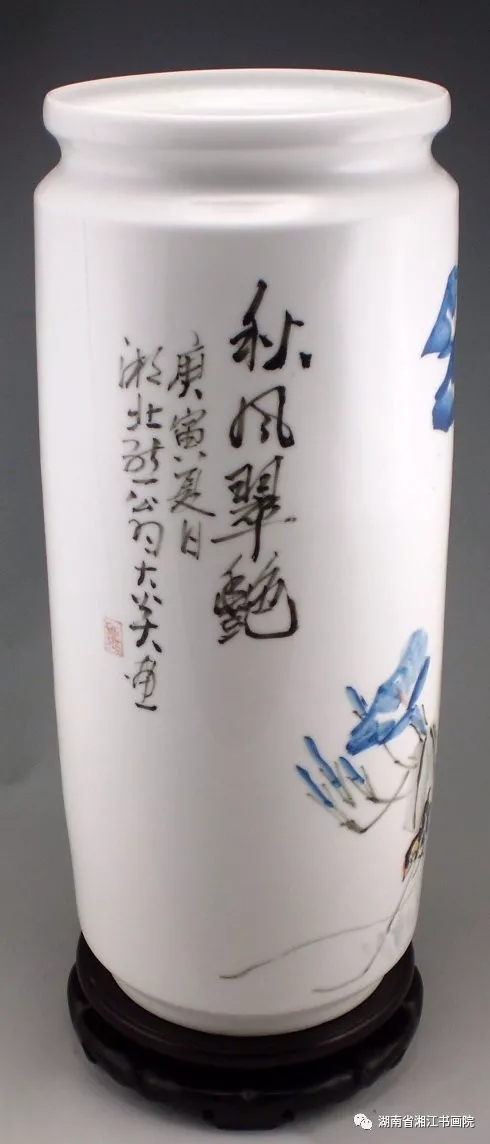 秋风翠艳
庚寅夏日
湘北
公
大
画
湖南省湘江书画院